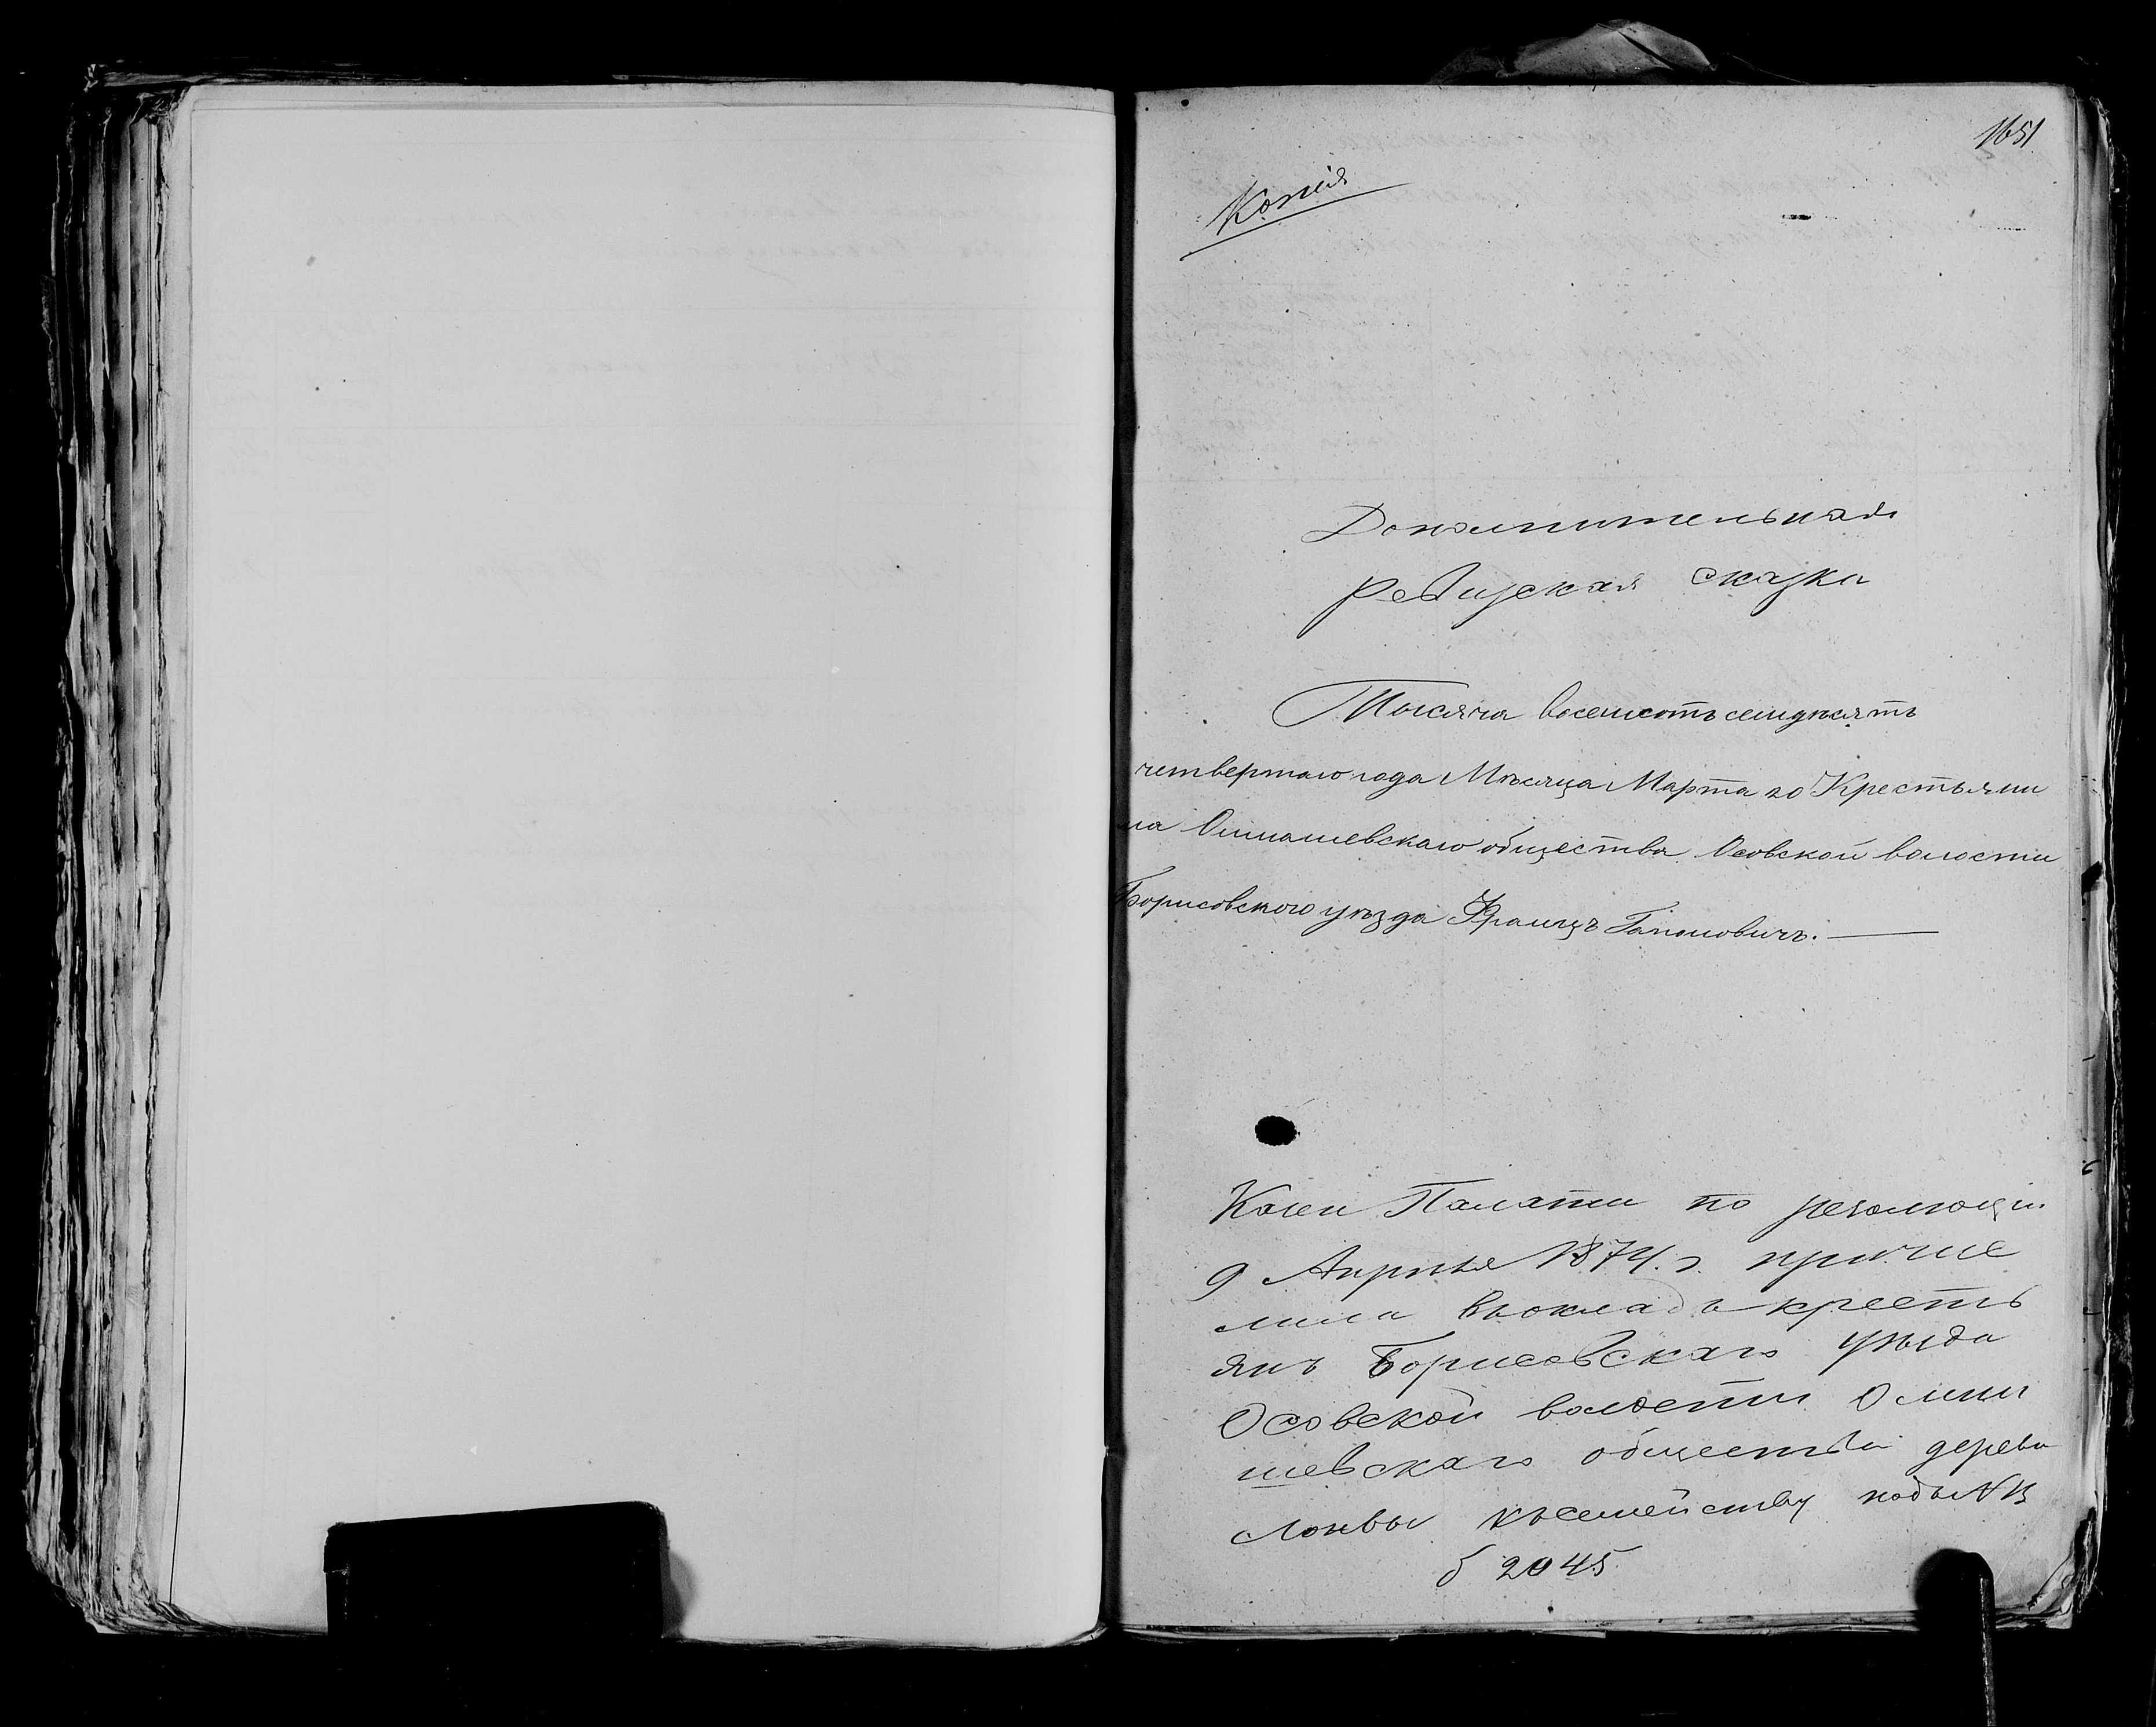 1651
Копія
Дополнительная
ревизская сказка
Тысяча восемьсотъ семдесятъ
четвертаго года Мѣсяца Марта 20 Крестьяни
на Омнишевскаго общества Осовской волости
Борисовского уѣзда Францъ Гапоновичъ.
Казен Палата по резолюціи
9 Апрѣля 1874. г. причис
лила въ окладъ кресть
янъ Борисовскаго уѣзда
Осовской волости Омни
шевскаго общества дерев
къ семейству подъ №
2045